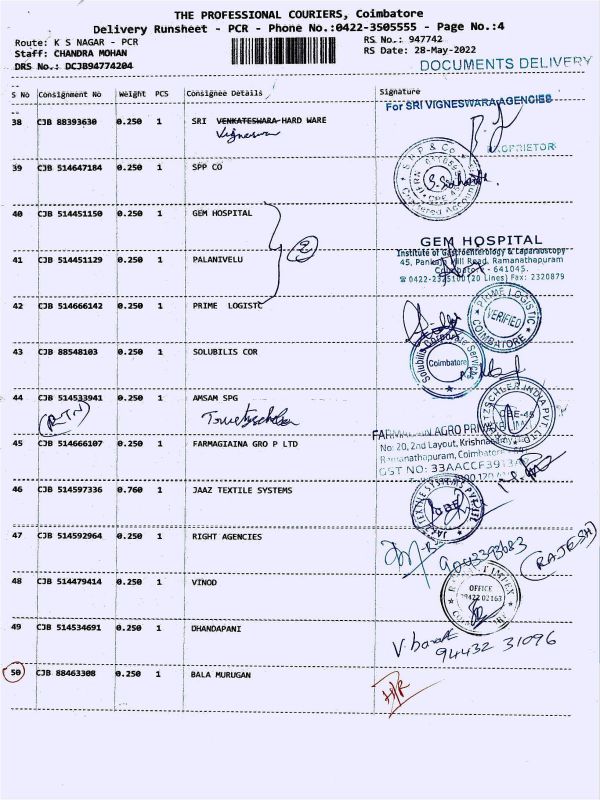 THE PROFESSIONAL COURIERS, Coimbatore
Delivery Runsheet - PCR - Phone No.:0422-3505555 - Page No.:4
Route: K S NAGAR - PCR
RS No.: 947742
Staff: CHANDRA MOHAN
RS Date: 28-May-2022
DRS No.: DCJB94774204
DOCUMENTS DELIVERY
S No Consignment No Weight PCS Consignee Details Signature
For SRI VIGNESWARA AGENCIES
38 CJB 88393630 0.250 1 SRI VENKATESWARA HARD WARE
Vigneswara
PROPRIETOR
39 CJB 514647184 0.250 1 SPP CO
S N P & Co
Chartered Accountants
40 CJB 514451150 0.250 1 GEM HOSPITAL
2
GEM HOSPITAL
Institute of Gastroenterology & Laparoscopy
41 CJB 514451129 0.250 1 PALANIVELU
45, Pankaja Mill Road, Ramanathapuram
Coimbatore - 641045.
0422-2325100 (20 Lines) Fax: 2320879
42 CJB 514666142 0.250 1 PRIME LOGISTC
PRIME LOGISTIC
VERIFIED
COIMBATORE
43 CJB 88548103 0.250 1 SOLUBILIS COR
Solubilis Corporate Services
Coimbatore
44 CJB 514533941 0.250 1 AMSAM SPG
(RTN)
Truetzschler
TRUETZSCHLER INDIA PVT. LTD
CBE-45
45 CJB 514666107 0.250 1 FARMAGIAINA GRO P LTD
AGRO PRIVATE
No: 20, 2nd Layout,
Ramanathapuram, Coimbatore
GST NO: 33AACCF3913
46 CJB 514597336 0.760 1 JAAZ TEXTILE SYSTEMS
CBE
47 CJB 514592964 0.250 1 RIGHT AGENCIES
9043393683
(RAJESH)
48 CJB 514479414 0.250 1 VINOD
IMPEX
OFFICE
99422 02163
49 CJB 514534691 0.250 1 DHANDAPANI
V. barat
94432 31096
50 CJB 88463308 0.250 1 BALA MURUGAN